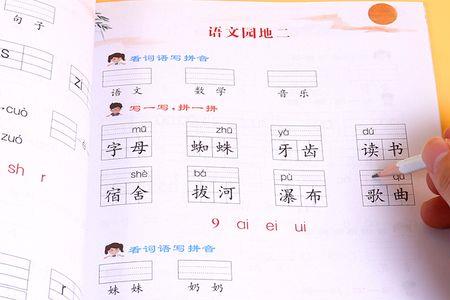 句 子
s
zi
cuò
zuó
sh r
语文园地二
看词语写拼音
语 文 数 学 音 乐
写一写,拼一拼
mǔ zhū yá dú
字 母 蜘 蛛 牙 齿 读 书
shè bá pù qǔ
宿 舍 拔 河 瀑 布 歌 曲
9 ai ei ui
看词语写拼音
妹 妹 奶 奶